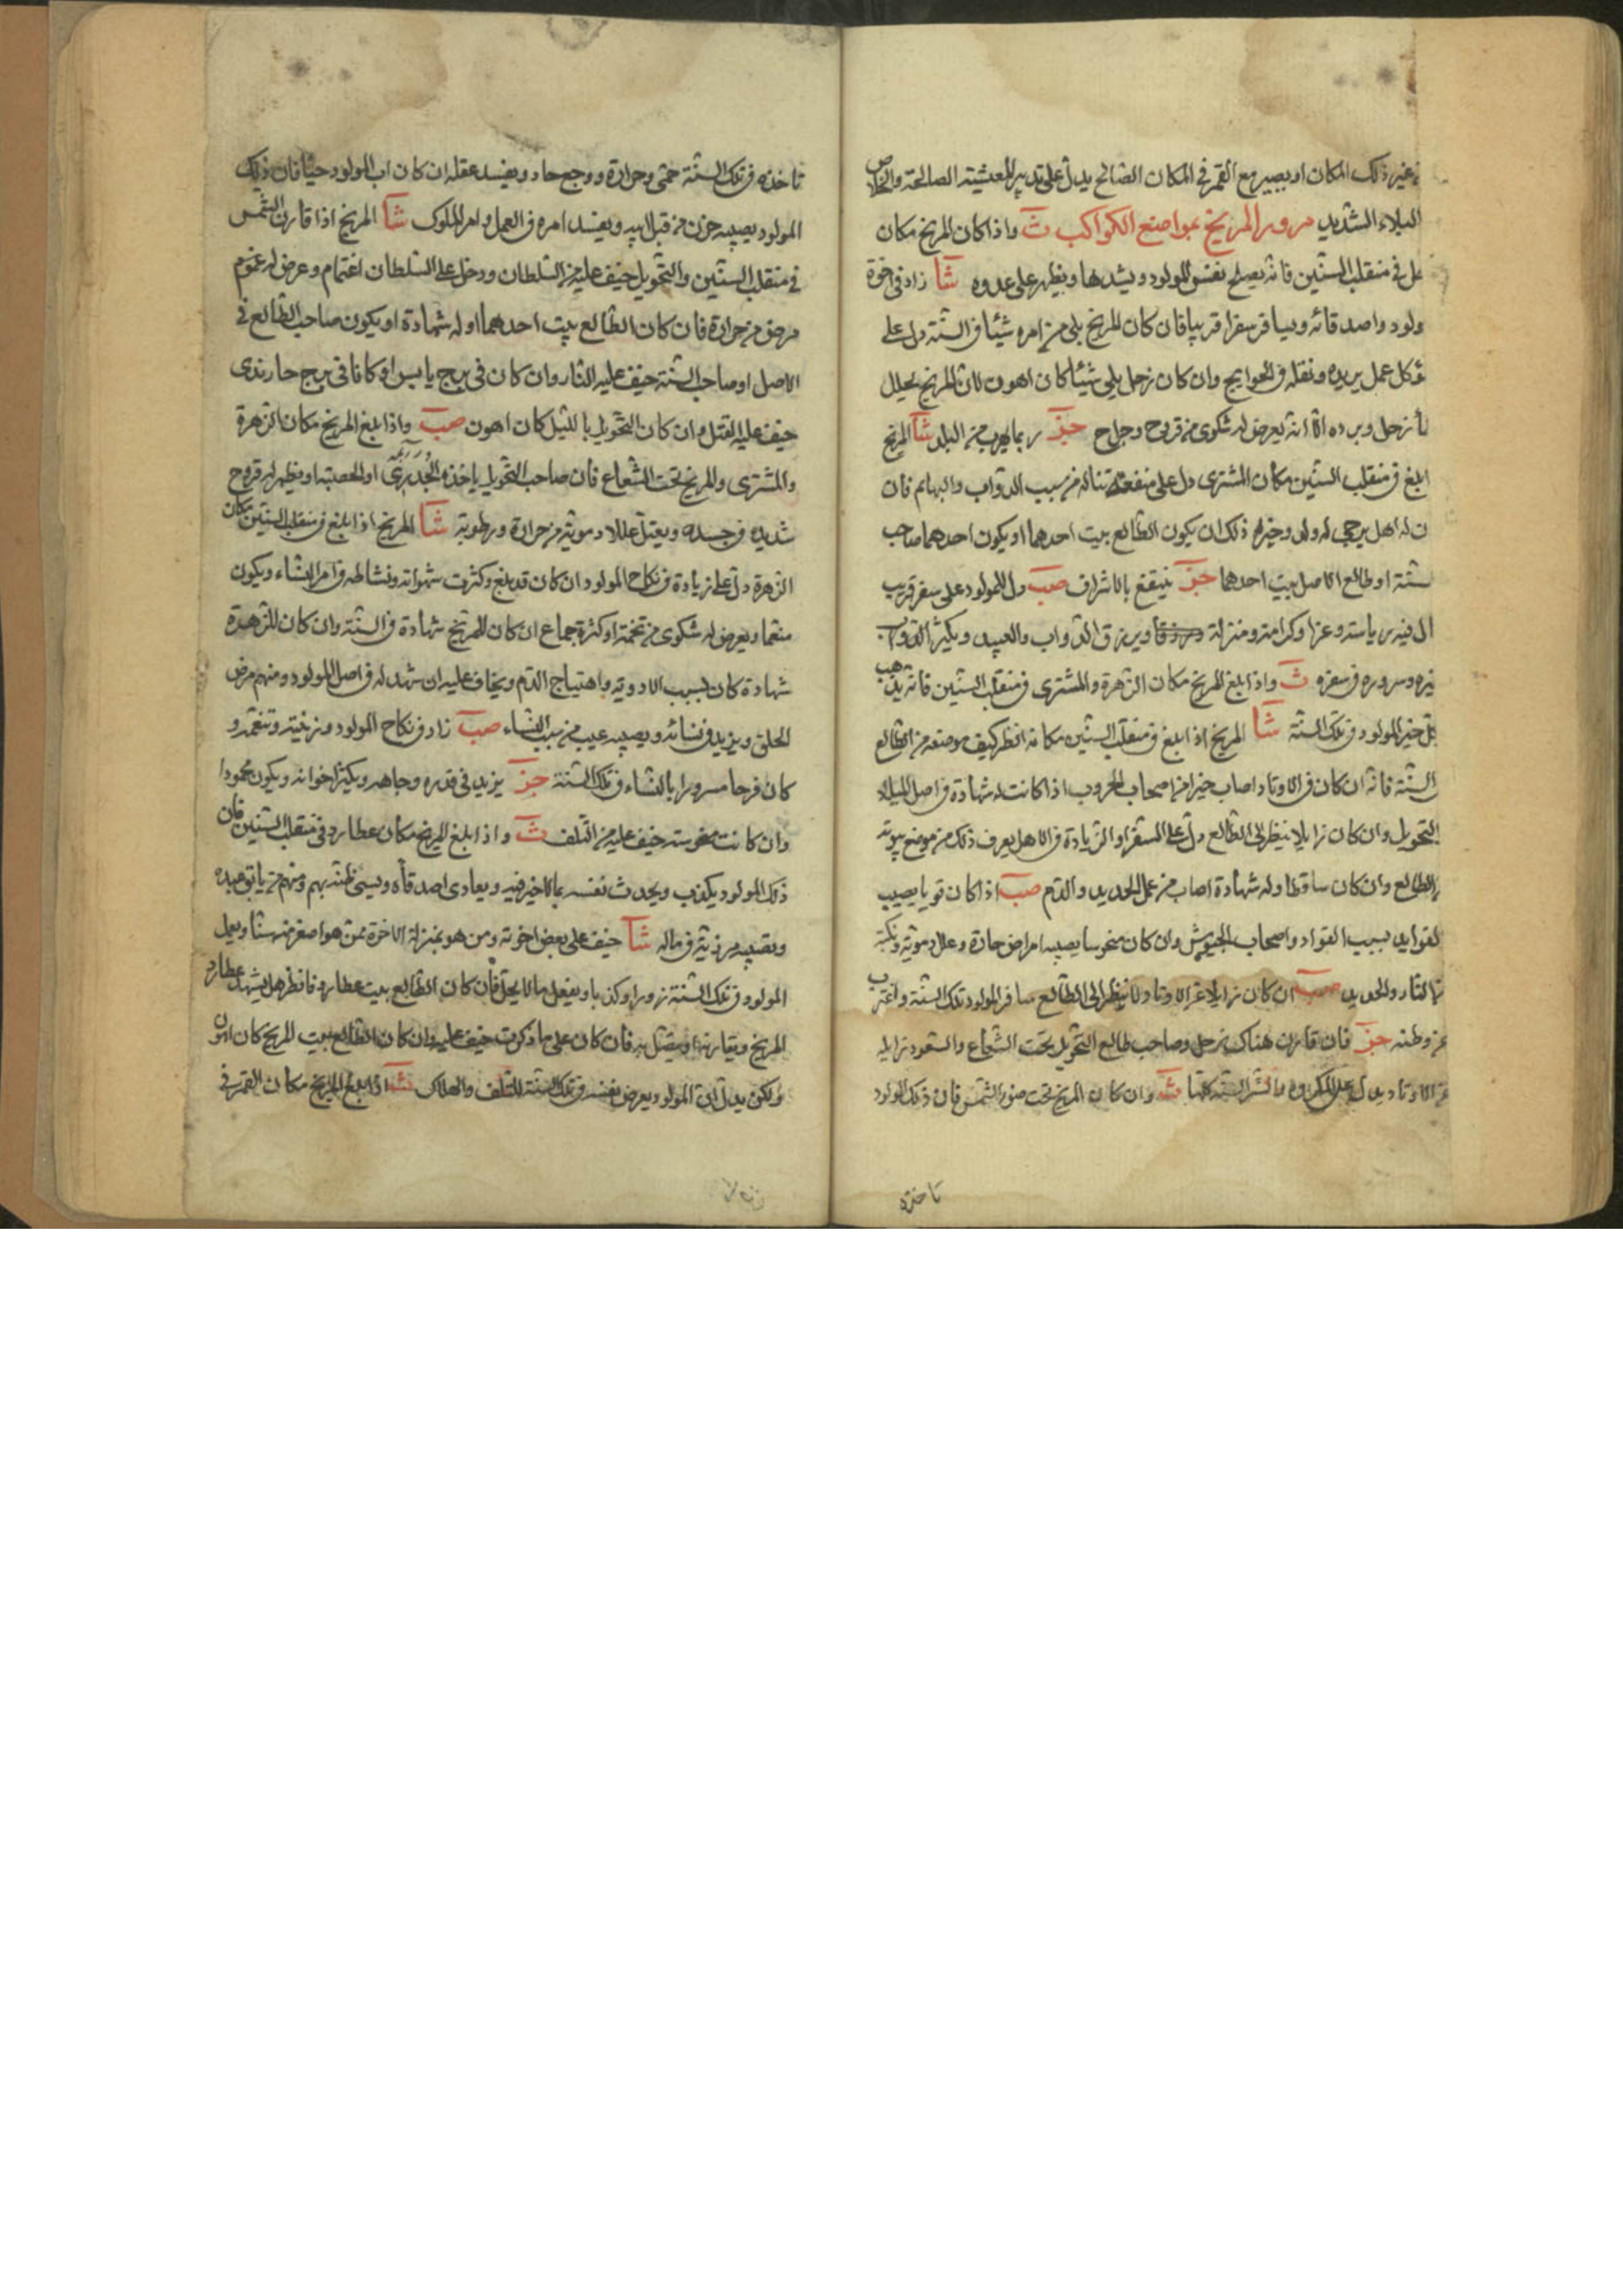 غير ذلك المكان او يصير مع القمر في المكان الصالح يدل على تدبير المعشية الصالحة والخلاص
البلاء الشديد مرور المريخ بمواضع الكواكب ث واذا كان المريخ مكان
في منقلب السنين فانه يصلح نفس المولود ويشدها ويظهر على عدوه شا زاد في اخوة
ولود واصدقائه ويسافر سفرا قريبا فان كان المريخ يلي من امره شيئا في السنة دل على
كل عمل يريده ونقله في الحوايج وان كان زحل يلي شيئا كان اهون لان المريخ يحلل
زحل وبرده الا انه يعرض له شكوى من قروح وجراح جز ربما يهرب من البلد شا المريخ
ابلغ في منقلب السنين مكان المشترى دل على منفعة تناله من سبب الدواب والبهايم فان
ن له اهل يرجى له ولد وخيره ذلك ان يكون الطالع بيت احدهما او يكون احدهما صاحب
سنة او طالع الاصل بيت احدهما جز ينتفع بالاشراف صب دل المولود على سفر قريب
ال فيه رياسة وعزا وكرامة ومنزلة ويرزق الدواب والعبيد ويكثر الدواب
يره وسروره في سفره ث واذا بلغ المريخ مكان الزهرة والمشترى في منقلب السنين فانه يذهب
خير المولود في تلك السنة شا المريخ اذا بلغ في منقلب السنين مكانه انظر كيف موضعه من الطالع
السنة فانه ان كان في الاوتاد اصاب خيرا من اصحاب الحروب اذا كانت له شهادة في اصل الميلاد
التحويل وان كان زايلا ينظر الى الطالع دل على السفر او الزيادة في الاهل يعرف ذلك من موضع بيوته
الطالع وان كان ساقطا وله شهادة اصاب من عمل الحديد والدم صب اذا كان قويا يصيب
لفوايد بسبب القواد واصحاب الجيوش وان كان منحوسا يصيبه امراض حادة وعلل دموية ونكبة
النار والحديد صب ان كان زايلا عن الاوتاد ولا ينظر الى الطالع سافر المولود تلك السنة واغترب
عن وطنه جز فان قارن هناك زحل وصاحب طالع التحويل تحت الشعاع والسعود زايله
عن الاوتاد يدل على المكروه والشر السنة كلها ث وان كان المريخ تحت ضوء الشمس فان ذلك المولود
تاخذه
تاخذه في تلك السنة حمى وحرارة ووجع حاد ويفسد عقله ان كان اب المولود حيا فان ذلك
المولود يصيبه حزن من قبل ابيه ويفسد امره في العمل وامر الملوك شا المريخ اذا قارن الشمس
في منقلب السنين والتحويل خيف عليه من السلطان ودخل على السلطان اغتمام وعرض له غموم
مرض من حرارة فان كان الطالع بيت احدهما او له شهادة او يكون صاحب الطالع في
الاصل او صاحب السنة خيف عليه النار وان كان في برج يابس او كانا في برج حار ندى
خيف عليه القتل وان كان التحويل بالليل كان اهون صب واذا بلغ المريخ مكان الزهرة
والمشترى والمريخ تحت الشعاع فان صاحب التحويل ياخذه الجدرى او الحصبة او يظهر له قروح
شديده في جسده ويعتل عللا دموية من حرارة ورطوبة شا المريخ اذا بلغ في منقلب السنين مكان
الزهرة دل على زيادة في نكاح المولود ان كان قد بلغ وكثرت شهواته ونشاطه في امر النساء ويكون
منعما ويعرض له شكوى من تخمة او كثرة جماع ان كان للمريخ شهادة في السنة وان كان للزهرة
شهادة كان بسبب الادوية واهتياج الدم ويخاف عليه ان شهد له في اصل المولود ومنهم مرض
الحلق ويزيد في نسائه ويصيبه عيب من سبب النساء صب زاد في نكاح المولود وزينته وتنعمه و
كان فرحا مسرورا بالنساء في تلك السنة جز يزيد في قدره وجاهه ويكثر اخوانه ويكون محمودا
وان كانت منحوسة خيف عليه من التلف ث واذا بلغ المريخ مكان عطارد في منقلب السنين فان
ذلك المولود يكذب ويحدث نفسه بما لا خير فيه ويعادى اصدقاه ويسئ ظنه بهم ومنهم من يابق عبده
وتصيبه مرزية في ماله شا خيف على بعض اخوته ومن هو بمنزلة الاخرة ممن هو اصغر منه سنا ويعمل
المولود في تلك السنة زورا وكذبا ويفعل ما لا يحل فان كان الطالع بيت عطارد فانظر هل يشهد عطارد
المريخ ويقارنه او يتصل به فان كان على ما ذكرت خيف عليه وان كان الطالع بيت المريخ كان اهون
ولكن يدل ان المولود يعرض نفسه في تلك السنة للتلف والهلاك ث اذا بلغ المريخ مكان القمر في